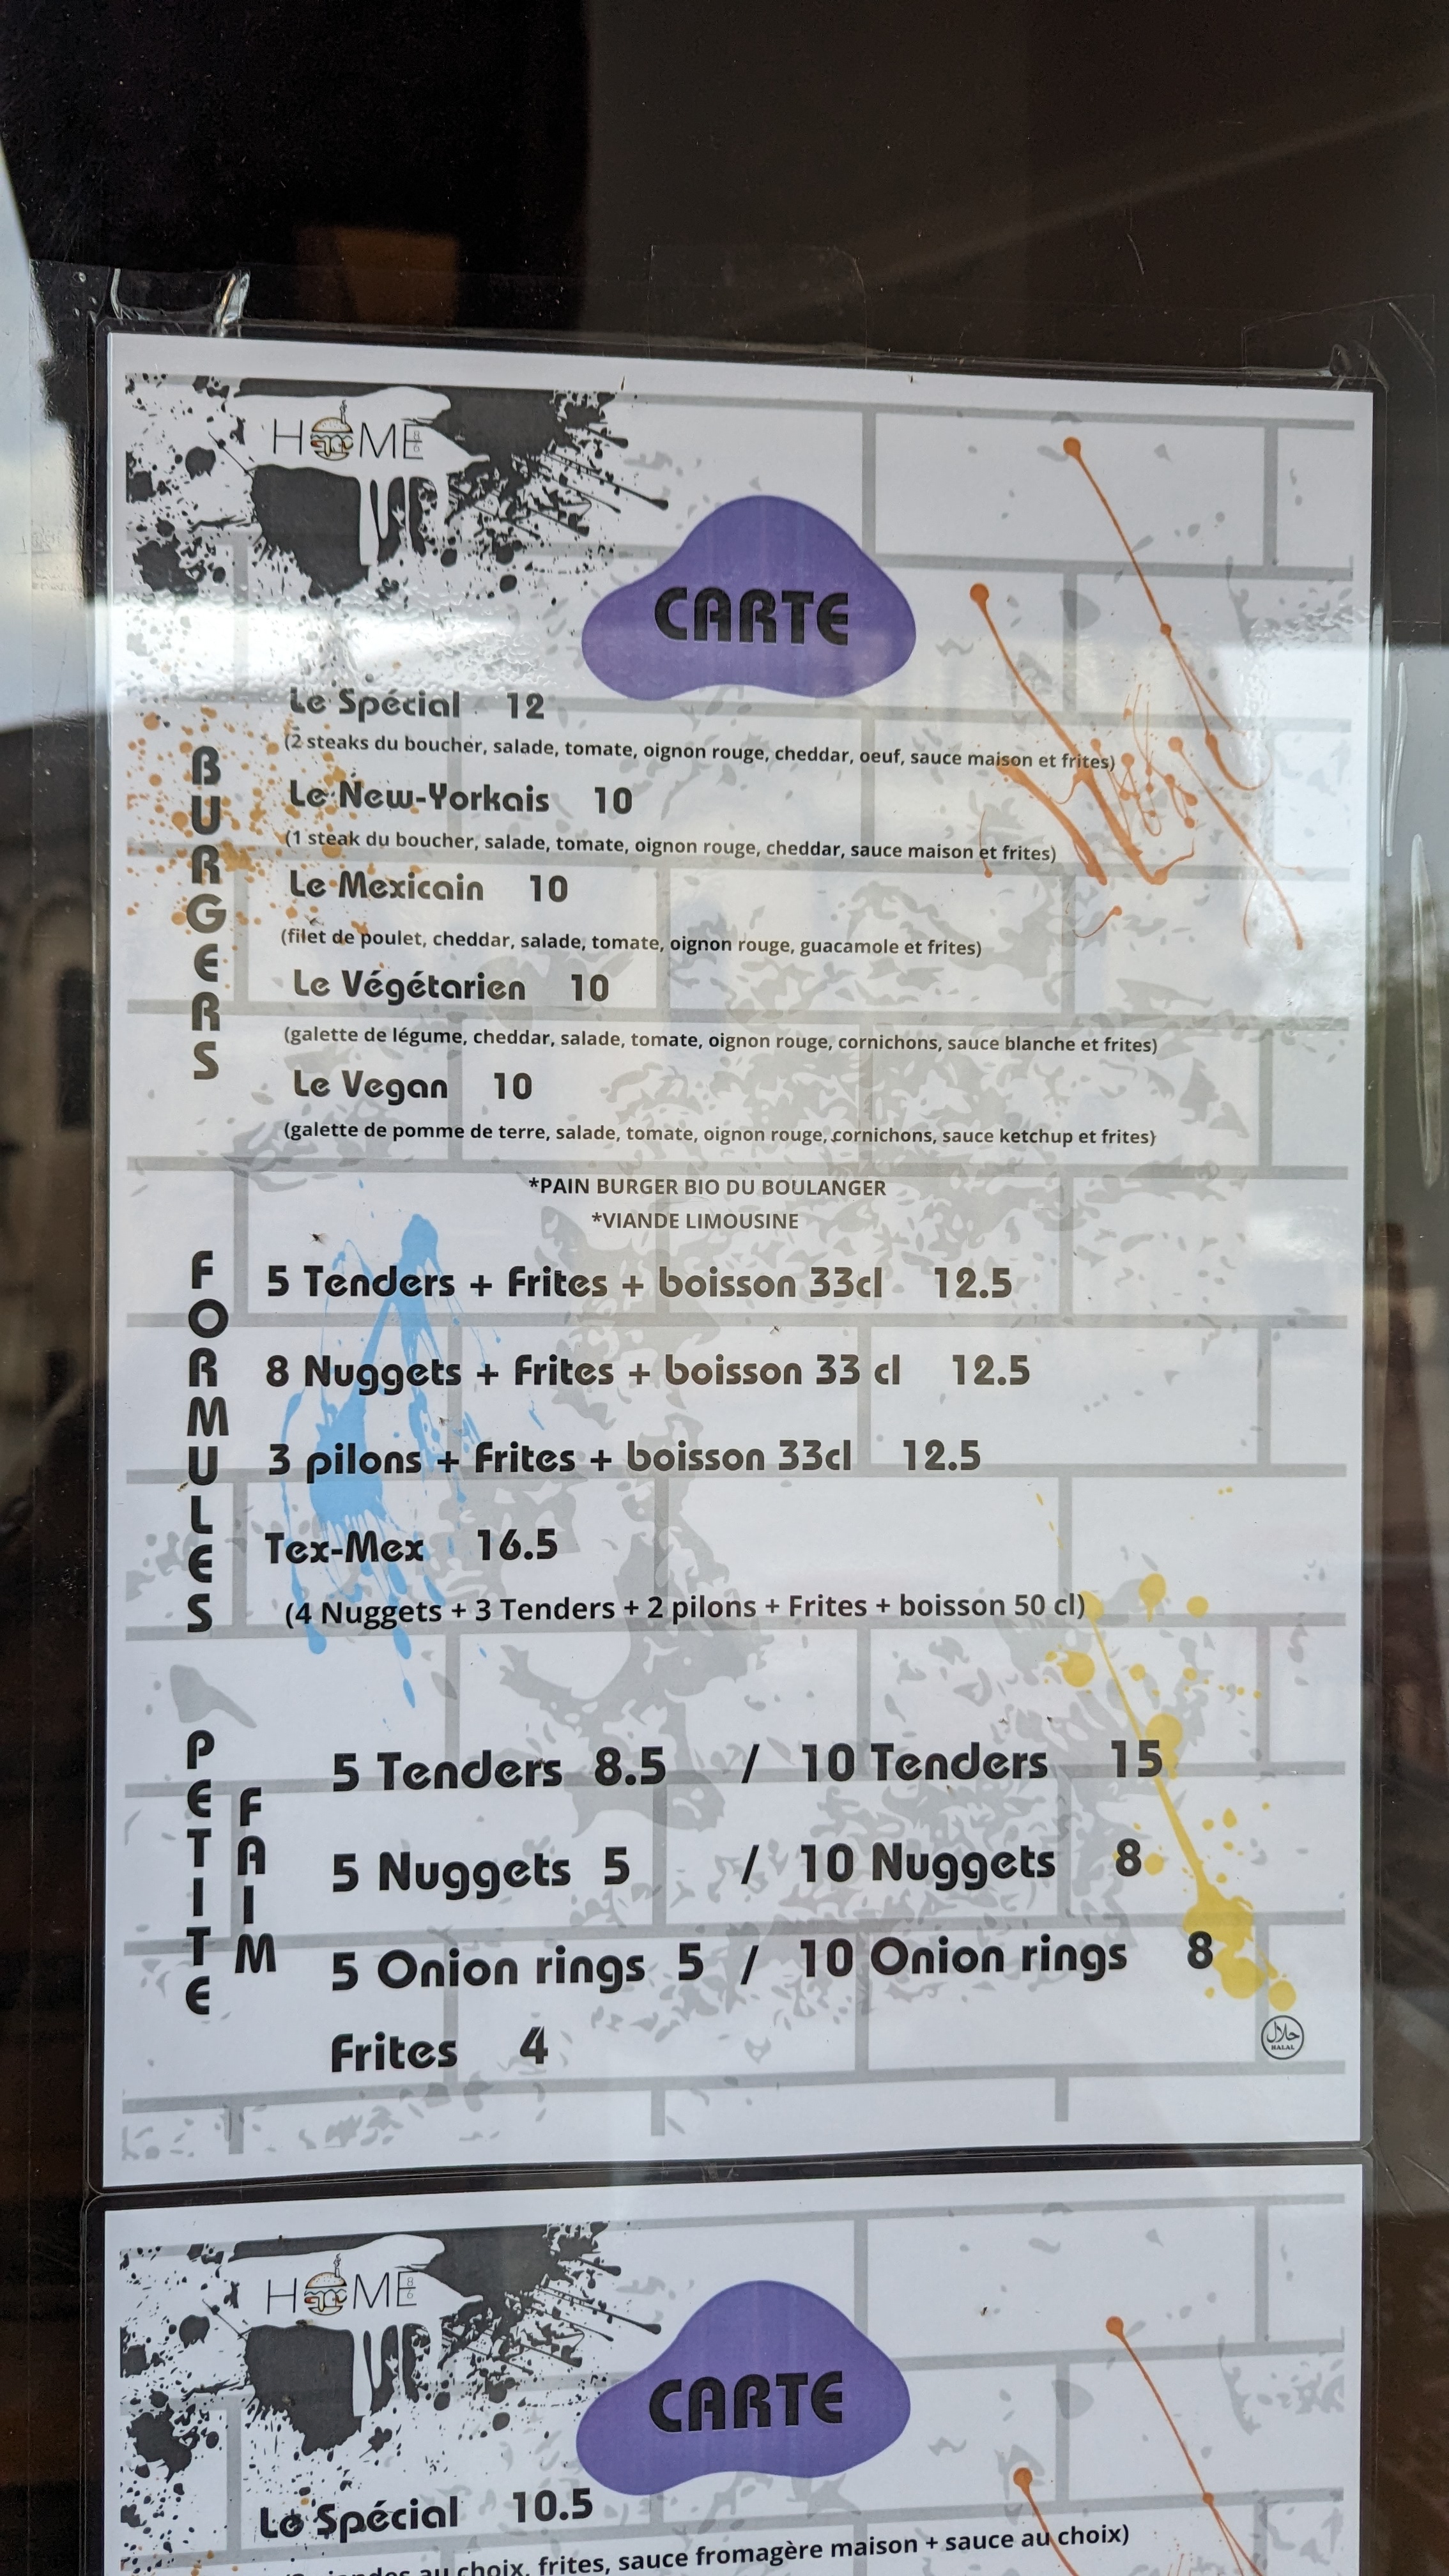 HOME 86
CARTE
BURGERS
Le Spécial 12
(2 steaks du boucher, salade, tomate, oignon rouge, cheddar, oeuf, sauce maison et frites)
Le New-Yorkais 10
(1 steak du boucher, salade, tomate, oignon rouge, cheddar, sauce maison et frites)
Le Mexicain 10
(filet de poulet, cheddar, salade, tomate, oignon rouge, guacamole et frites)
Le Végétarien 10
(galette de légume, cheddar, salade, tomate, oignon rouge, cornichons, sauce blanche et frites)
Le Vegan 10
(galette de pomme de terre, salade, tomate, oignon rouge, cornichons, sauce ketchup et frites)
*PAIN BURGER BIO DU BOULANGER
*VIANDE LIMOUSINE
FORMULES
5 Tenders + Frites + boisson 33cl 12.5
8 Nuggets + Frites + boisson 33 cl 12.5
3 pilons + Frites + boisson 33cl 12.5
Tex-Mex 16.5
(4 Nuggets + 3 Tenders + 2 pilons + Frites + boisson 50 cl)
PETITE
FAIM
5 Tenders 8.5 / 10 Tenders 15
5 Nuggets 5 / 10 Nuggets 8
5 Onion rings 5 / 10 Onion rings 8
Frites 4
حلال
HALAL
HOME 86
CARTE
Le Spécial 10.5
au choix, frites, sauce fromagère maison + sauce au choix)